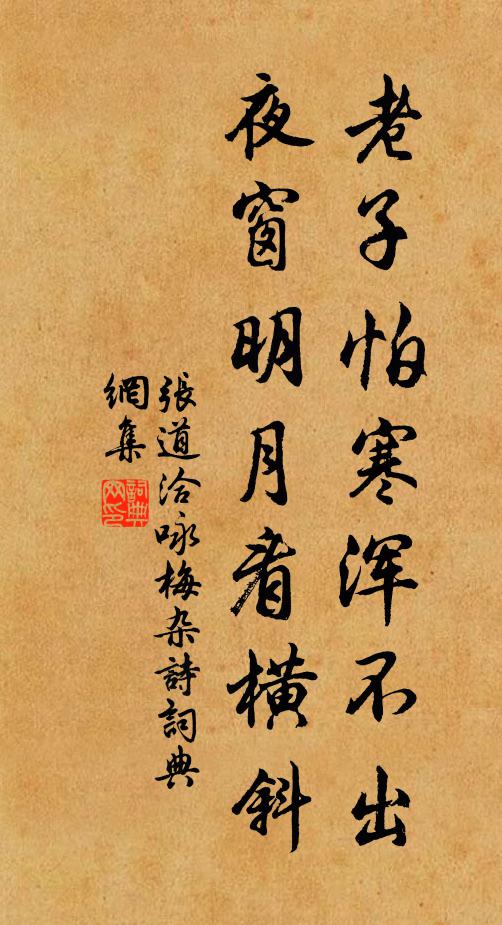 老子怕寒浑不出
夜窗明月看横斜
張道洽咏梅杂詩詞典
網集
詞典网印